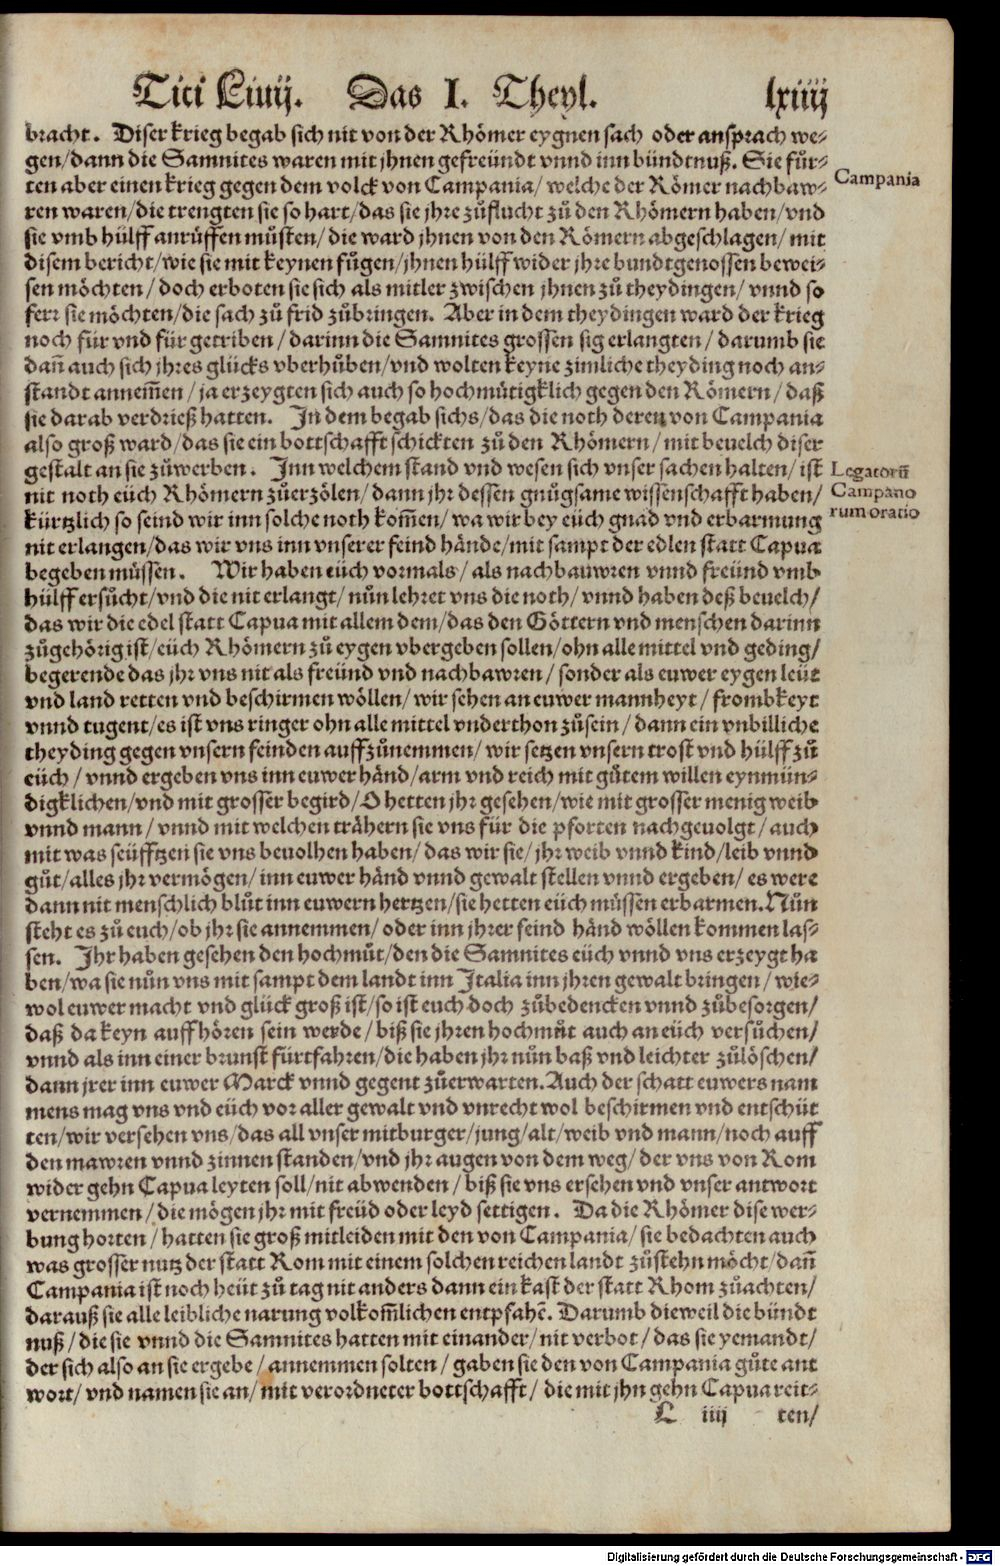 Titi Liuij. Das I. Theyl. lxiiij
bracht. Diser krieg begab sich nit von der Rhömer eygnen sach oder ansprach we-
gen/dann die Samnites waren mit jhnen gefreündt vnnd inn bündtnuß. Sie für-
ten aber einen krieg gegen dem volck von Campania/ welche der Römer nachbaw-
Campania
ren waren/die trengten sie so hart/das sie jhre zůflucht zů den Rhömern haben/vnd
sie vmb hülff anrůffen můsten/ die ward jhnen von den Römern abgeschlagen/ mit
disem bericht/wie sie mit keynen fůgen/jhnen hülff wider jhre bundtgenossen bewei-
sen möchten/ doch erboten sie sich als mitler zwischen jhnen zů theydingen/ vnnd so
ferr sie möchten/die sach zů frid zůbringen. Aber in dem theydingen ward der krieg
noch für vnd für getriben/ darinn die Samnites grossen sig erlangten/ darumb sie
dañ auch sich jhres glücks vberhůben/vnd wolten keyne zimliche theyding noch an-
standt annem̃en/ ja erzeygten sich auch so hochmůtigklich gegen den Römern/ daß
sie darab verdrieß hatten. In dem begab sichs/das die noth deren von Campania
also groß ward/das sie ein bottschafft schickten zů den Rhömern/ mit beuelch diser
gestalt an sie zůwerben. Inn welchem stand vnd wesen sich vnser sachen halten/ ist
Legatorũ
nit noth eüch Rhömern zůerzölen/ dann jhr dessen gnůgsame wissenschafft haben/
Campano
kürtzlich so seind wir inn solche noth kom̃en/ wa wir bey eüch gnad vnd erbarmung
rum oratio
nit erlangen/das wir vns inn vnserer feind hände/mit sampt der edlen statt Capua
begeben müssen. Wir haben eüch vormals/ als nachbauwren vnnd freünd vmb
hülff ersůcht/vnd die nit erlangt/ nůn lehret vns die noth/ vnnd haben deß beuelch/
das wir die edel statt Capua mit allem dem/das den Göttern vnd menschen darinn
zůgehörig ist/eüch Rhömern zů eygen vbergeben sollen/ohn alle mittel vnd geding/
begerende das jhr vns nit als freünd vnd nachbawren/ sonder als euwer eygen leüt
vnd land retten vnd beschirmen wöllen/ wir sehen an euwer mannheyt/ frombkeyt
vnnd tugent/es ist vns ringer ohn alle mittel vnderthon zůsein/ dann ein vnbilliche
theyding gegen vnsern feinden auffzůnemmen/ wir setzen vnsern trost vnd hülff zů
eüch/ vnnd ergeben vns inn euwer händ/arm vnd reich mit gůtem willen eynmün-
digklichen/vnd mit grosser begird/O hetten jhr gesehen/wie mit grosser menig weib
vnnd mann/ vnnd mit welchen trähern sie vns für die pforten nachgeuolgt/ auch
mit was seüfftzen sie vns beuolhen haben/ das wir sie/ jhr weib vnnd kind/leib vnnd
gůt/alles jhr vermögen/ inn euwer händ vnnd gewalt stellen vnnd ergeben/ es were
dann nit menschlich blůt inn euwern hertzen/sie hetten eüch müssen erbarmen. Nůn
steht es zů euch/ob jhr sie annemmen/ oder inn jhrer feind händ wöllen kommen las-
sen. Ihr haben gesehen den hochmůt/den die Samnites eüch vnnd vns erzeygt ha
ben/wa sie nůn vns mit sampt dem landt inn Italia inn jhren gewalt bringen/ wie-
wol euwer macht vnd glück groß ist/so ist euch doch zůbedencken vnnd zůbesorgen/
daß da keyn auffhören sein werde/ biß sie jhren hochmůt auch an eüch versůchen/
vnnd als inn einer brunst fürtfahren/die haben jhr nůn baß vnd leichter zůlöschen/
dann jrer inn euwer Marck vnnd gegent zůerwarten. Auch der schatt euwers nam
mens mag vns vnd eüch vor aller gewalt vnd vnrecht wol beschirmen vnd entschüt
ten/wir versehen vns/das all vnser mitburger/jung/alt/weib vnd mann/noch auff
den mawren vnnd zinnen standen/vnd jhr augen von dem weg/ der vns von Rom
wider gehn Capua leyten soll/nit abwenden/ biß sie vns ersehen vnd vnser antwort
vernemmen/ die mögen jhr mit freüd oder leyd settigen. Da die Rhömer dise wer-
bung horten/ hatten sie groß mitleiden mit den von Campania/ sie bedachten auch
was grosser nutz der statt Rom mit einem solchen reichen landt zůstehn möcht/dañ
Campania ist noch heüt zů tag nit anders dann ein kast der statt Rhom zůachten/
darauß sie alle leibliche narung volkom̃lichen entpfahẽ. Darumb dieweil die bündt
nuß/ die sie vnnd die Samnites hatten mit einander/ nit verbot/ das sie yemandt/
der sich also an sie ergebe/ annemmen solten/ gaben sie den von Campania gůte ant
wort/ vnd namen sie an/ mit verordneter bottschafft/ die mit jhn gehn Capua reit-
L iiij ten/
Digitalisierung gefördert durch die Deutsche Forschungsgemeinschaft - DFG